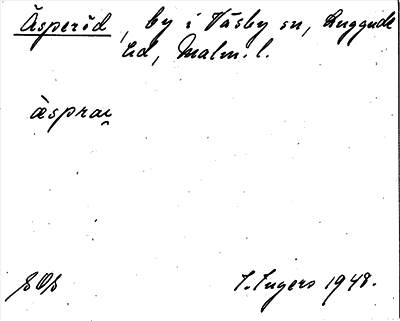 Äsperöd, by i Väsby sn, Luggude
hd, Malm. l.
äspraų
I. Ingers 1948.